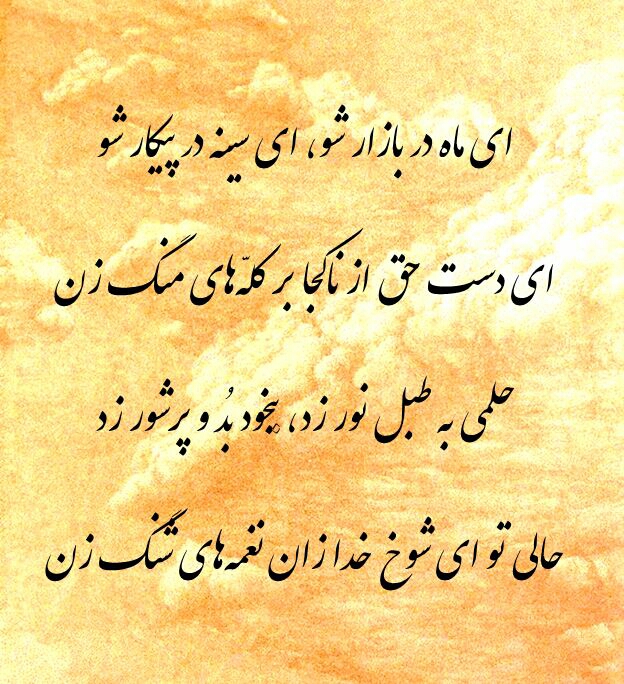 ای ماه در بازار شو، ای سینه در پیکار شو
ای دست حق از ناکجا بر کلّه‌های منگ زن
حلمی به طبل نور زد، بیخود بُد و پرشور زد
حالی تو ای شوخ خدا زان نغمه‌های شنگ زن